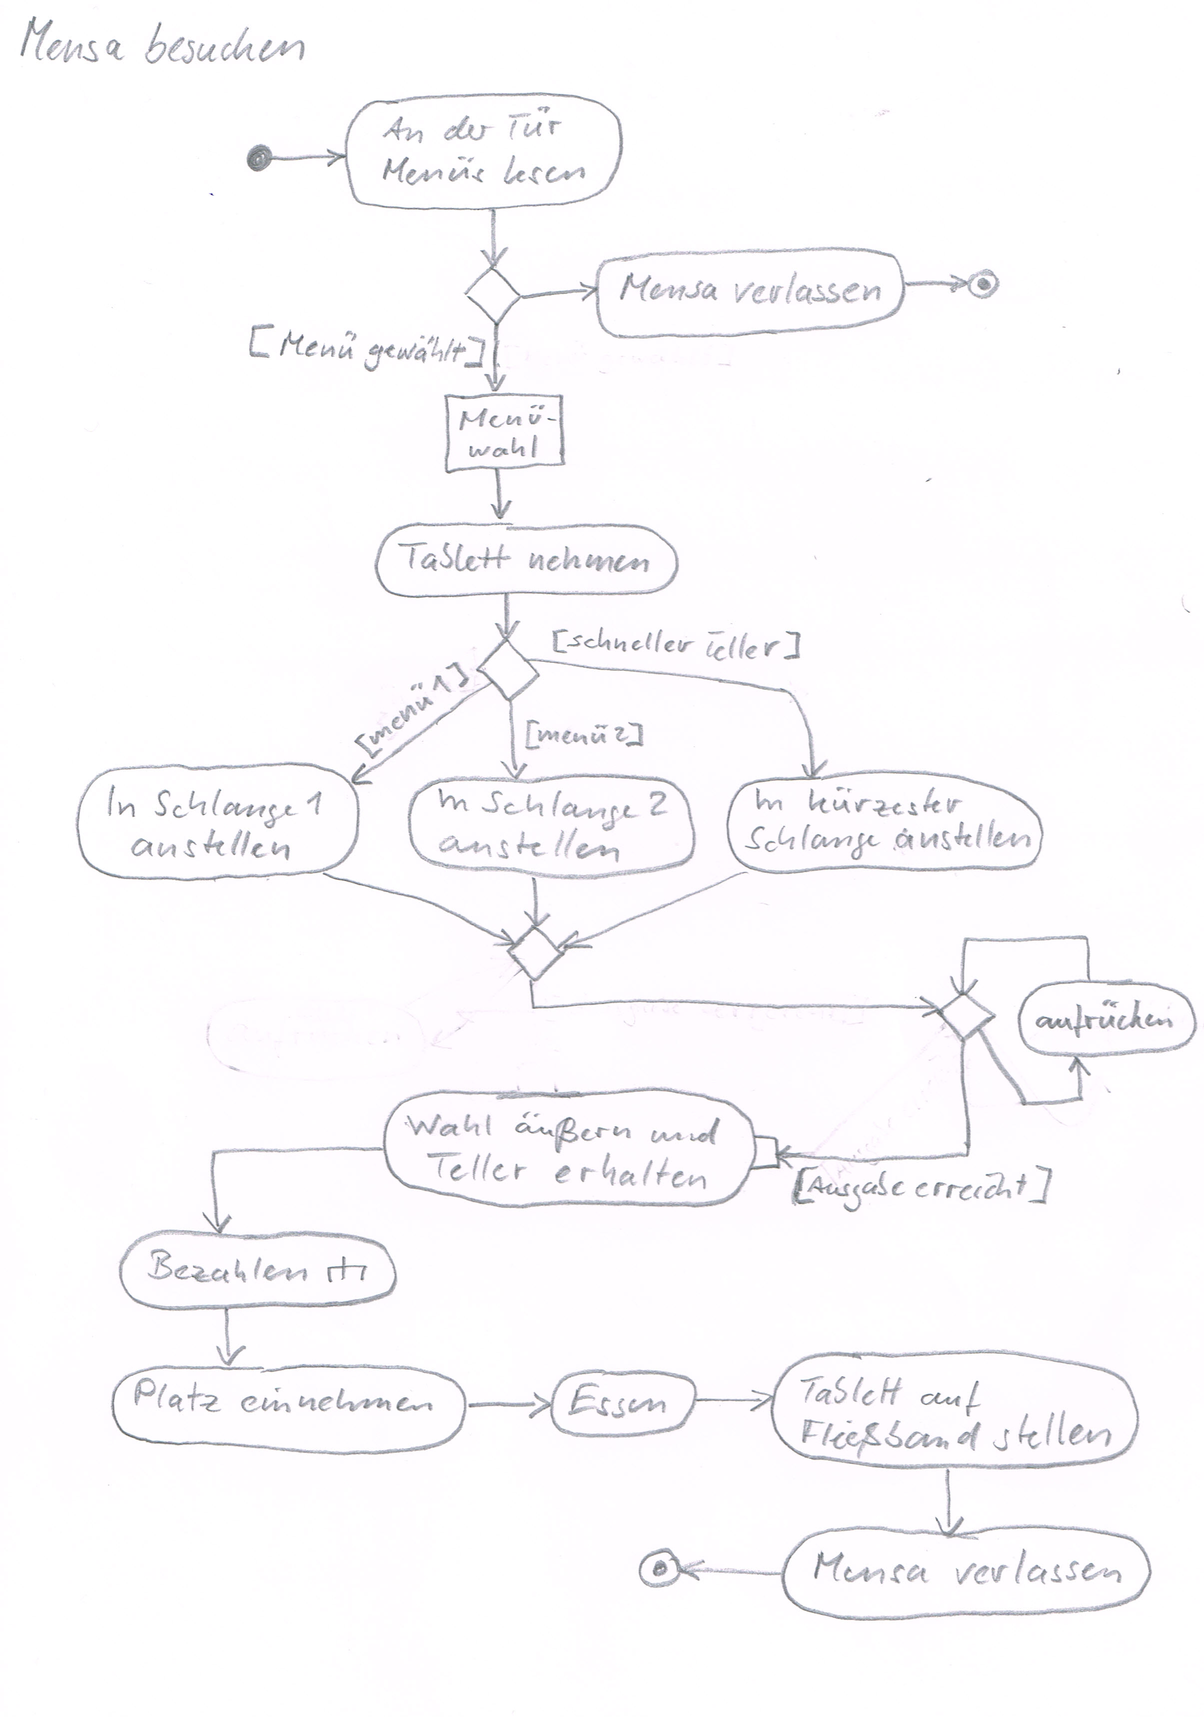 Mensa besuchen
An der Tür
Menüs lesen
Mensa verlassen
[Menü gewählt]
Menü-
wahl
Tablett nehmen
[schneller Teller]
[menü 1]
[menü 2]
In Schlange 1
anstellen
In Schlange 2
anstellen
In kürzester
Schlange anstellen
aufrücken
Wahl äußern und
Teller erhalten
[Ausgabe erreicht]
Bezahlen
Platz einnehmen
Essen
Tablett auf
Fließband stellen
Mensa verlassen